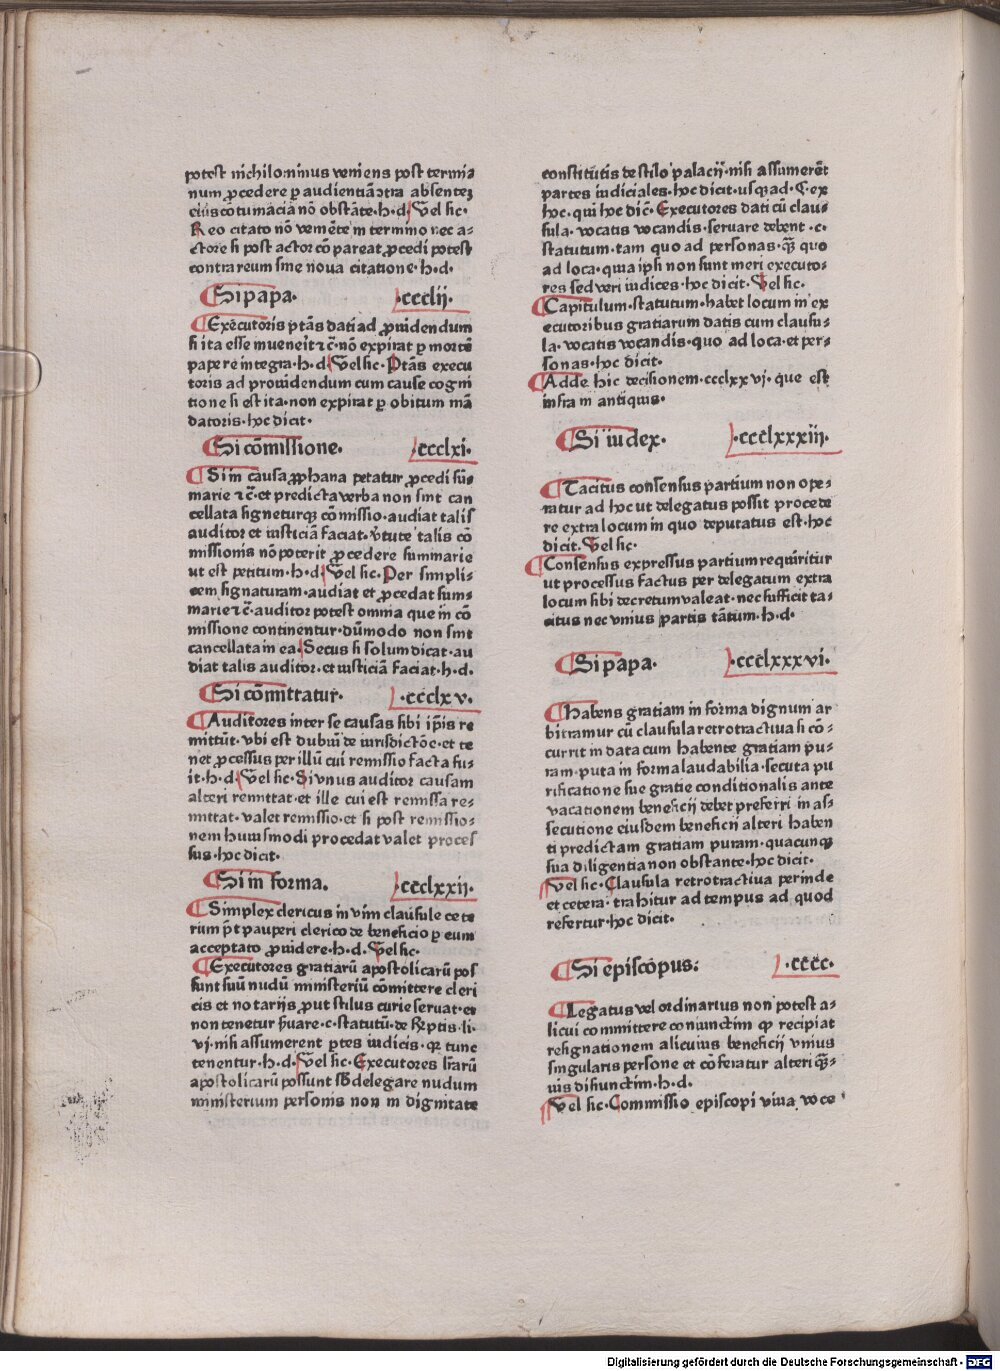 potest nichilominus veniens post termi⸗
num ꝓcedere ꝑ audientiā ↄtra absentes
eius cōtumaciā nō obstāte·h·d· Vel sic·
Reo citato nō veniēte in termino nec a⸗
ctore si post actor cōpareat ꝓcedi potest
contra reum sine noua citatione·h·d·
Si papa· ·ccclij·
Executoris p̄tās dati ad ꝓuidendum
si ita esse inueneit ⁊c̄·nō expirat ꝑ mortē
pape re integra·h·d· Vel sic· Ptās execu
toris ad prouidendum cum cause cogni
tione si est ita·non expirat ꝑ obitum mā
datoris·hoc dicit·
Si cōmissione· ·ccclxi·
Si in causa ꝓphana petatur ꝓcedi sū⸗
marie ⁊c̄·et predicta verba non sint can
cellata signeturqꝫ cōmissio·audiat talis
auditor et iusticiā faciat·v̄tute talis cō
missionis nō poterit ꝓcedere summarie
ut est petitum·h·d· Vel sic· Per simpli⸗
cem signaturam·audiat et ꝓcedat sum⸗
marie ⁊c̄·auditor potest omnia que in cō
missione continentur·dūmodo non sint
cancellata in ea· Secus si solum dicat·au
diat talis auditor·et iusticiā faciat·h·d·
Si cōmittatur· ·ccclxv·
Auditores inter se causas sibi ip̄is re
mittūt·vbi est dubiū de iurisdictōe·et te
net ꝓcessus per illū cui remissio facta fu⸗
it·h·d· Vel sic· Si vnus auditor causam
alteri remittat·et ille cui est remissa re⸗
mittat·valet remissio·et si post remissio⸗
nem huiusmodi procedat valet proces
sus·hoc dicit·
Si in forma. ·ccclxxij·
Simplex clericus in vim clausule cete
rum p̄t pauperi clerico de beneficio ꝑ eum
acceptato ꝓuidere·h·d· Vel sic·
Executores gratiarū apostolicarū pos
sunt suū nudū ministeriū cōmittere cleri
cis et notarijs ꝓut stilus curie seruat·et
non tenetur s̄uare·c·statutū·de R̄ptis·li·
vj·nisi assumerent ꝑtes iudicis·qꝛ tunc
tenentur·h·d· Vel sic· Executores lr̄arū
apostolicarū possunt sb̄delegare nudum
ministerium personis non in dignitate
constitutis de stilo palacij·nisi assumerēt
partes iudiciales·hoc dicit·usqꝫ ad·C·ex
hoc·qui hoc dic̄· Executores dati cū clau⸗
sula·vocatis vocandis·seruare debent·c·
statutum·tam quo ad personas·qꝫ̄ quo
ad loca·quia ipsi non sunt meri executo⸗
res sed veri iudices·hoc dicit· Vel sic·
Capitulum·statutum·habet locum in ex
ecutoribus gratiarum datis cum clausu⸗
la·vocatis vocandis·quo ad loca·et per⸗
sonas·hoc dicit·
Adde hic decisionem·ccclxxvj·que est
infra in antiquis·
Si iudex· ·ccclxxxiij·
Tacitus consensus partium non ope⸗
ratur ad hoc ut delegatus possit procede
re extra locum in quo deputatus est·hoc
dicit· Vel sic·
Consensus expressus partium requiritur
ut processus factus per delegatum extra
locum sibi decretum valeat·nec sufficit ta⸗
citus nec vnius partis tātum·h·d·
Si papa· ·ccclxxxvi·
Habens gratiam in forma dignum ar
bitramur cū clausula retrotractiua si cō⸗
currit in data cum habente gratiam pu⸗
ram·puta in forma laudabilia·secuta pu
rificatione sue gratie conditionalis ante
vacationem beneficij debet preferri in as⸗
secutione eiusdem beneficij alteri haben
ti predictam gratiam puram·quacunqꝫ
sua diligentia non obstante·hoc dicit·
Vel sic· Clausula retrotractiua perinde
et cetera·trahitur ad tempus ad quod
refertur·hoc dicit·
Si episcopus: ·cccc·
Legatus vel ordinarius non potest a⸗
licui committere coniunctim ꝙ recipiat
resignationem alicuius beneficij vnius
singularis persone et cōferatur alteri qꝫ̄⸗
uis disiunctim·h·d·
Vel sic· Commissio episcopi viua voce
Digitalisierung gefördert durch die Deutsche Forschungsgemeinschaft - DFG